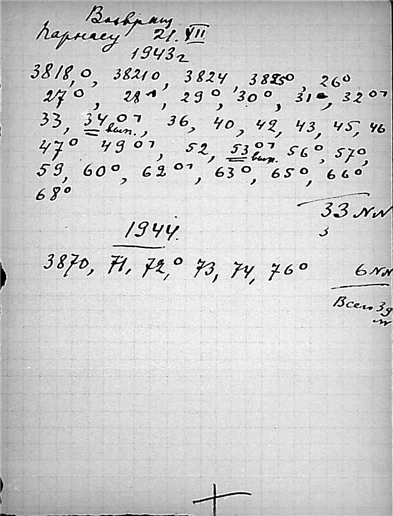 Возвращ
Парнасу 21. VII
1943 г
3818,0, 38210, 3824, 38250, 26º
27º, 28º, 29º, 30º, 31, 32º
33, 34º вып., 36, 40, 42, 43, 45, 46
47º 49º, 52, 53º вып. 56º, 57º,
59, 60º, 62º, 63º, 65º, 66º
68º
33 NN
1944.
3870, 71, 72,º 73, 74, 76º
6 NN
Всего 39